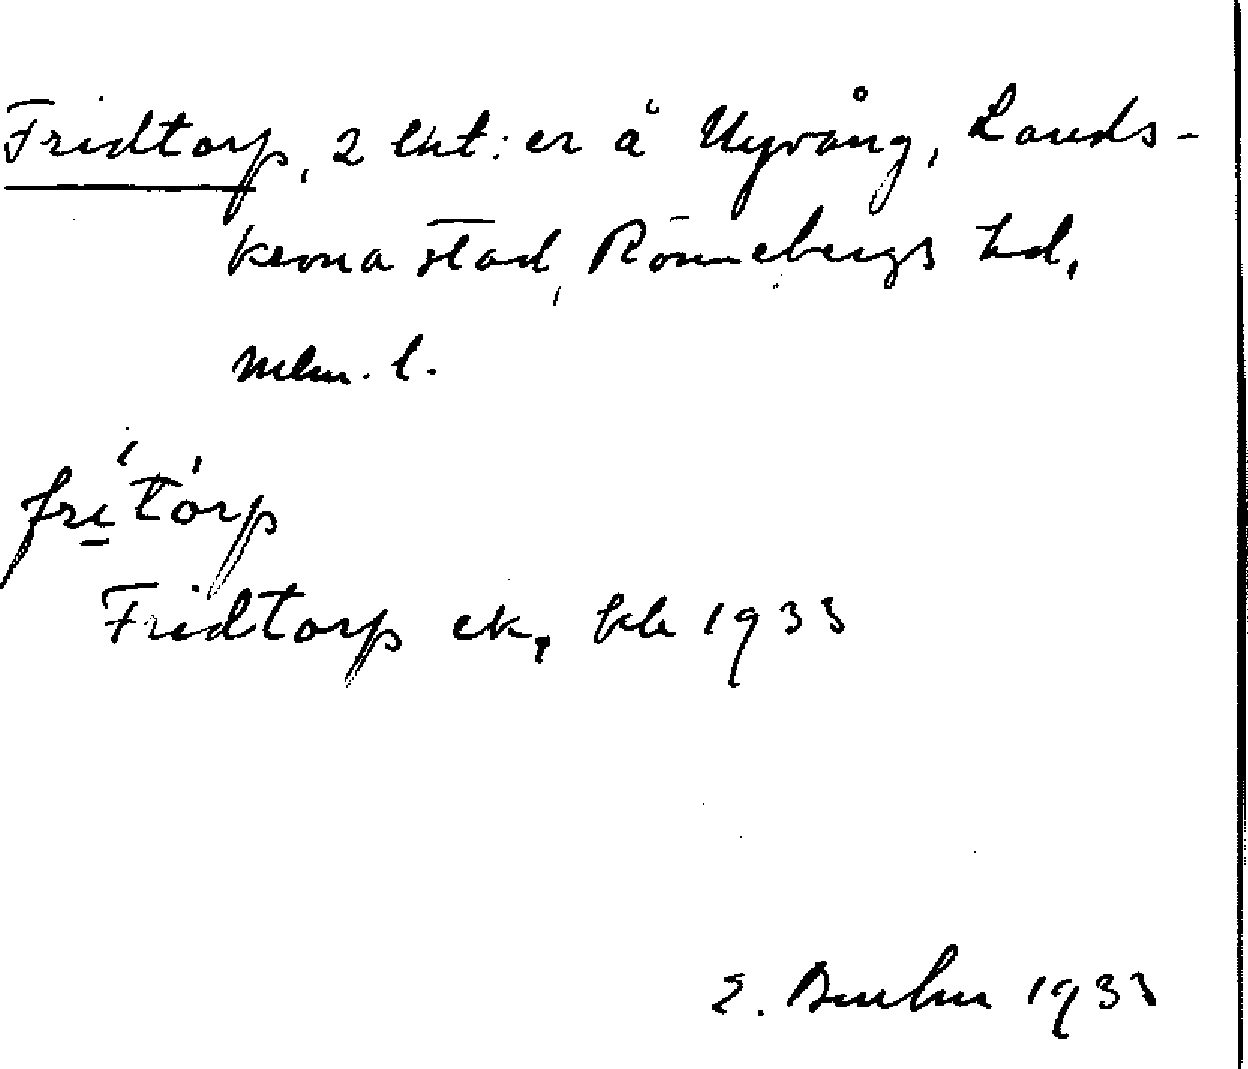 Fridtorp, 2 lht:er å Nyvång, Lands-
krona stad, Rönnebergs hd,
Mlm. l.
frí̱tòrp
Fridtorp ek, kb 1933
1933